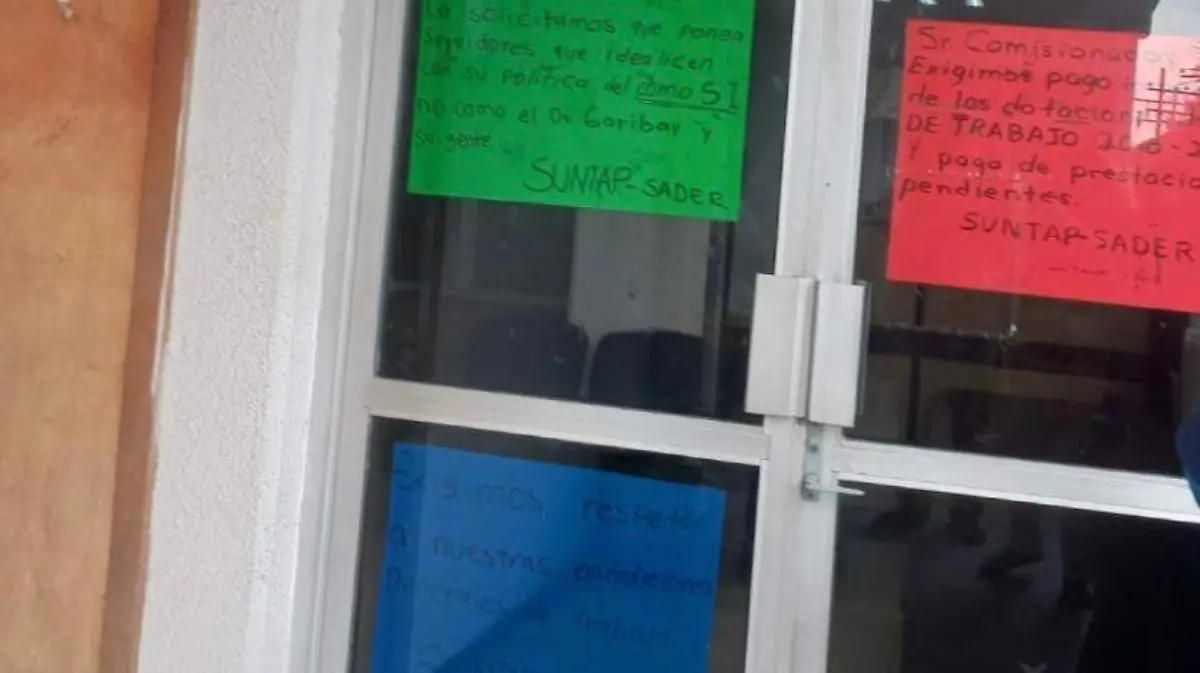 Le solicitamos que ponga
seguidores que idealicen
con su política del como SI
no como el Dr Garibay y
su gente.
SUNTAP-SADER
Sr. Comisionado
Exigimos pago
de las dotacion
DE TRABAJO
y pago de prestacio
pendientes.
SUNTAP-SADER
Exigimos respeto
a nuestras condiciones
Generales de trabajo